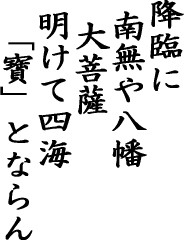 降臨に
南無や八幡
大菩薩
明けて四海
「寶」とならん